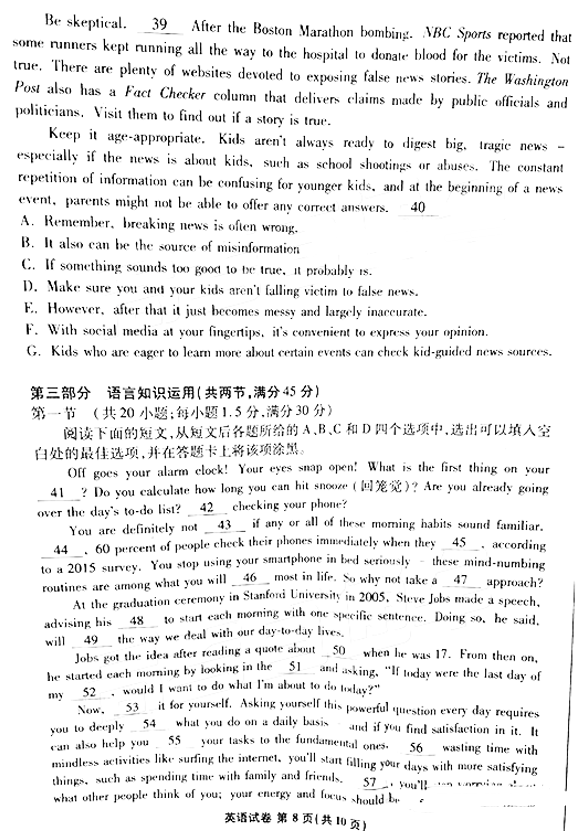 Be skeptical. 39 After the Boston Marathon bombing. NBC Sports reported that
some runners kept running all the way to the hospital to donate blood for the victims. Not
true. There are plenty of websites devoted to exposing false news stories. The Washington
Post also has a Fact Checker column that delivers claims made by public officials and
politicians. Visit them to find out if a story is true.
Keep it age-appropriate. Kids aren't always ready to digest big, tragic news –
especially if the news is about kids, such as school shootings or abuses. The constant
repetition of information can be confusing for younger kids, and at the beginning of a news
event, parents might not be able to offer any correct answers. 40
A. Remember, breaking news is often wrong.
B. It also can be the source of misinformation
C. If something sounds too good to be true, it probably is.
D. Make sure you and your kids aren't falling victim to false news.
E. However, after that it just becomes messy and largely inaccurate.
F. With social media at your fingertips, it's convenient to express your opinion.
G. Kids who are eager to learn more about certain events can check kid-guided news sources.
第三部分 语言知识运用(共两节,满分45分)
第一节 (共20小题;每小题1.5分,满分30分)
阅读下面的短文,从短文后各题所给的A、B、C和D四个选项中,选出可以填入空
白处的最佳选项,并在答题卡上将该项涂黑。
Off goes your alarm clock! Your eyes snap open! What is the first thing on your
41 ? Do you calculate how long you can hit snooze (回笼觉)? Are you already going
over the day's to-do list? 42 checking your phone?
You are definitely not 43 if any or all of these morning habits sound familiar.
44 , 60 percent of people check their phones immediately when they 45 , according
to a 2015 survey. You stop using your smartphone in bed seriously – these mind-numbing
routines are among what you will 46 most in life. So why not take a 47 approach?
At the graduation ceremony in Stanford University in 2005, Steve Jobs made a speech,
advising his 48 to start each morning with one specific sentence. Doing so, he said,
will 49 the way we deal with our day-to-day lives.
Jobs got the idea after reading a quote about 50 when he was 17. From then on,
he started each morning by looking in the 51 and asking, "If today were the last day of
my 52 , would I want to do what I'm about to do today?"
Now, 53 it for yourself. Asking yourself this powerful question every day requires
you to deeply 54 what you do on a daily basis and if you find satisfaction in it. It
can also help you 55 your tasks to the fundamental ones. 56 wasting time with
mindless activities like surfing the internet, you'll start filling your days with more satisfying
things, such as spending time with family and friends. 57 , you'll
what other people think of you; your energy and focus should be
英语试卷 第8页(共10页)